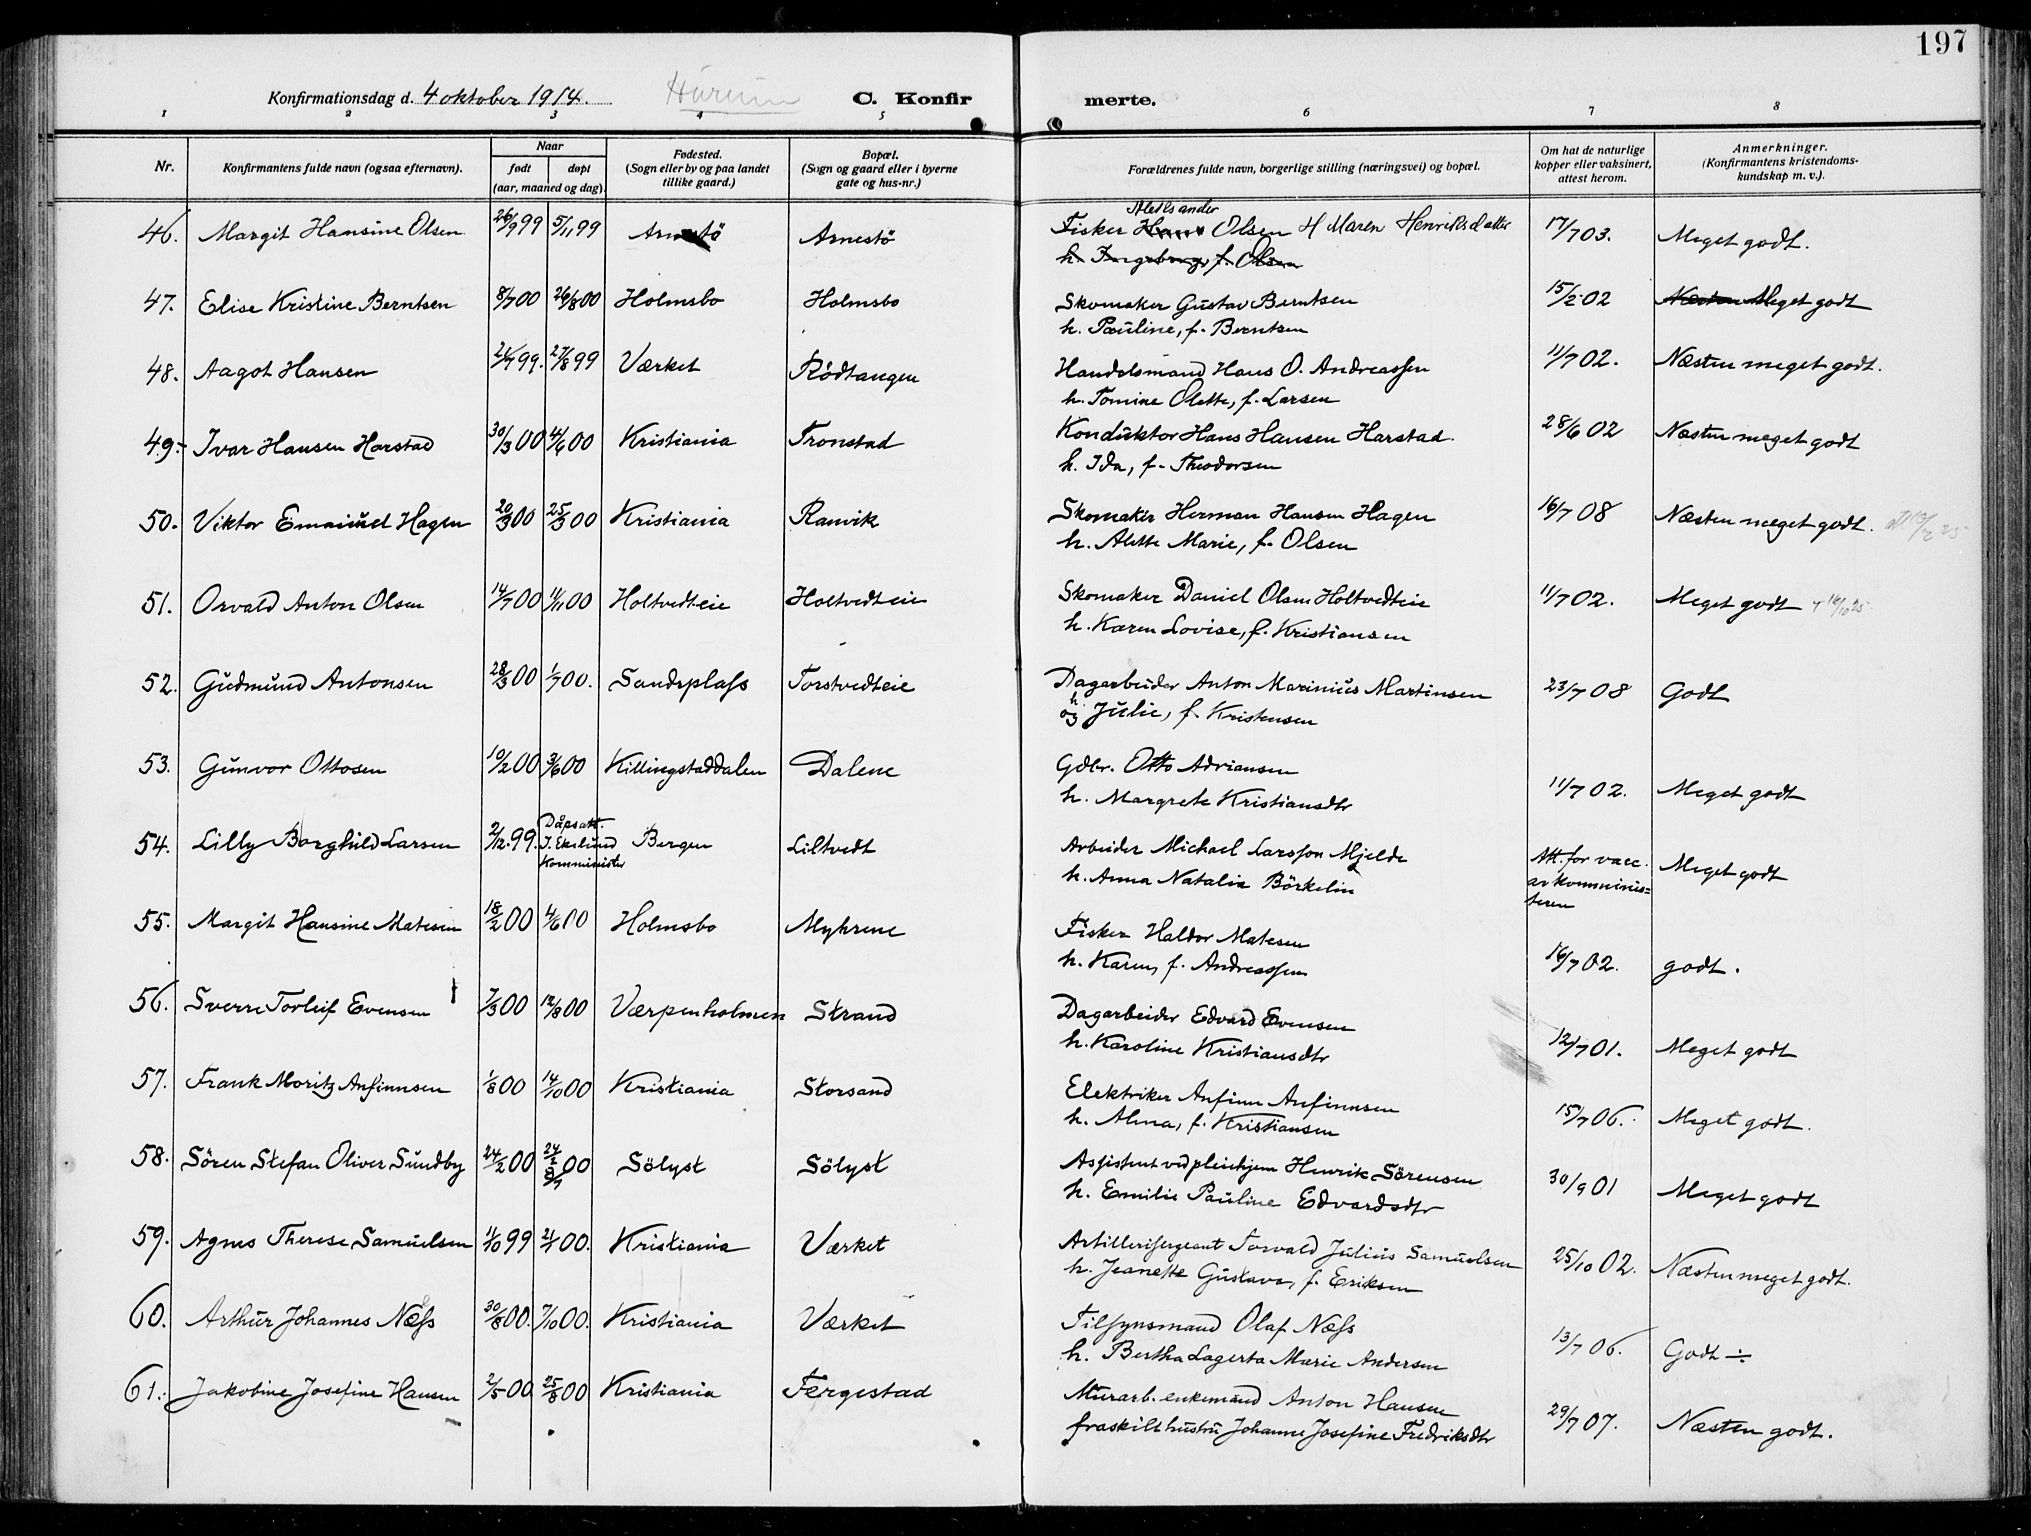 197
Konfirmationsdag d. 4 oktober 1914. Hurum C. Konfirmerte.
1 2 3 4 5 6 7 8
Nr. Konfirmantens fulde navn (ogsaa efternavn). Naar født døpt (aar, maaned og dag). Fødested. (Sogn eller by og paa landet tillike gaard.) Bopæl. (Sogn og gaard eller i byerne gate og hus-nr.) Forældrenes fulde navn, borgerlige stilling (næringsvei) og bopæl. Om hat de naturlige kopper eller vaksinert, attest herom. Anmerkninger. (Konfirmantens kristendomskundskap m. v.).
46. Margit Hansine Olsen 26/9 99 5/11 99 Arnestö Arnestö Fisker Aleksander Olsen H Maren Henriksdatter 17/7 03. Meget godt.
h. Ingeborg, f. Olsen
47. Elise Kristine Berntsen 8/7 00 26/8 00 Holmsbo Holmsbo Skomaker Gustav Berntsen 15/2 02 Næsten Meget godt
h. Pauline, f. Berntsen
48. Aagot Hansen 21/7 99. 27/8 99 Værket Rödtangen Handelsmand Hans O. Andreassen 11/7 02. Næsten meget godt.
h. Tomine Olette, f. Larsen
49. Ivar Hansen Harstad 30/3 00 4/6 00 Kristiania Tronstad Konduktor Hans Hansen Harstad. 28/6 02 Næsten meget godt
h. Ida, f. Theodorsen
50. Viktor Emanuel Hagen 20/3 00 25/3 00 Kristiania Ranvik Skomaker Herman Hansen Hagen 16/7 08 Næsten meget godt.
h. Alette Marie, f. Olsen
51. Osvald Anton Olsen 14/7 00 11/11 00 Holtvedteie Holtvedteie Skomaker Daniel Olsen Holtvedteie 11/7 02. Meget godt
h. Karen Lovise, f. Kristiansen
52. Gudmund Antonsen 28/3 00 1/7 00. Sandsplass Torstvedteie Dagarbeider Anton Marinius Martinsen 23/7 08 Godt
og h. Julie, f. Kristensen
53. Gunvor Ottosen 10/2 00 3/6 00 Killingstaddalen Dalene Gdbr. Otto Adriansen 11/7 02. Meget godt
h. Margrete Kristiansdtr
54. Lilly Borghild Larsen 2/12. 99. Dåpsatt. J. Ekelund Komminister Bergen Liltvedt Arbeider Michael Larsson Mjelde Att. for vacc. av komministeren Meget godt
h. Anna Natalia Börkelin
55. Margit Hansine Matesen 18/2 00 4/6 00 Holmsbo Myhrene Fisker Haldor Matesen 16/7 02. godt.
h. Karen, f. Andreassen
56. Sverre Torleif Evensen 7/3 00 12/8 00 Værpenholmen Strand Dagarbeider Edvard Evensen 12/7 01. Meget godt
h. Karoline Kristiansdtr
57. Frank Moritz Anfinnsen 1/8 00 14/10 00 Kristiania Storsand Elektriker Anfinn Anfinnsen 15/7 06. Meget godt.
h. Alma, f. Kristiansen
58. Sören Stefan Oliver Sundby 24/2 00 24/2 8/7 00 Sölyst Sölyst Assistent ved pleiehjem Henrik Sörensen 30/9 01 Meget godt
h. Emilie Pauline Edvardsdtr
59. Agnes Therese Samuelsen 11/10 99 21/1 00. Kristiania Værket Artillerisergeant Torvald Julius Samuelsen 25/10 02. Næsten meget godt.
h. Jeanette Gustava, f. Eriksen
60. Arthur Johannes Næss 30/8 00. 7/10 00. Kristiania Værket Tilsynsmand Olaf Næss 13/7 06. Godt ÷
h. Bertha Lagerta Marie Andersen
61. Jakobine Josefine Hansen 2/5 00 25/8 00 Kristiania Færgestad Murarb. enkemand Anton Hansen 29/7 07. Næsten godt.
fraskilt hustru Johanne Josefine Fredriksdtr